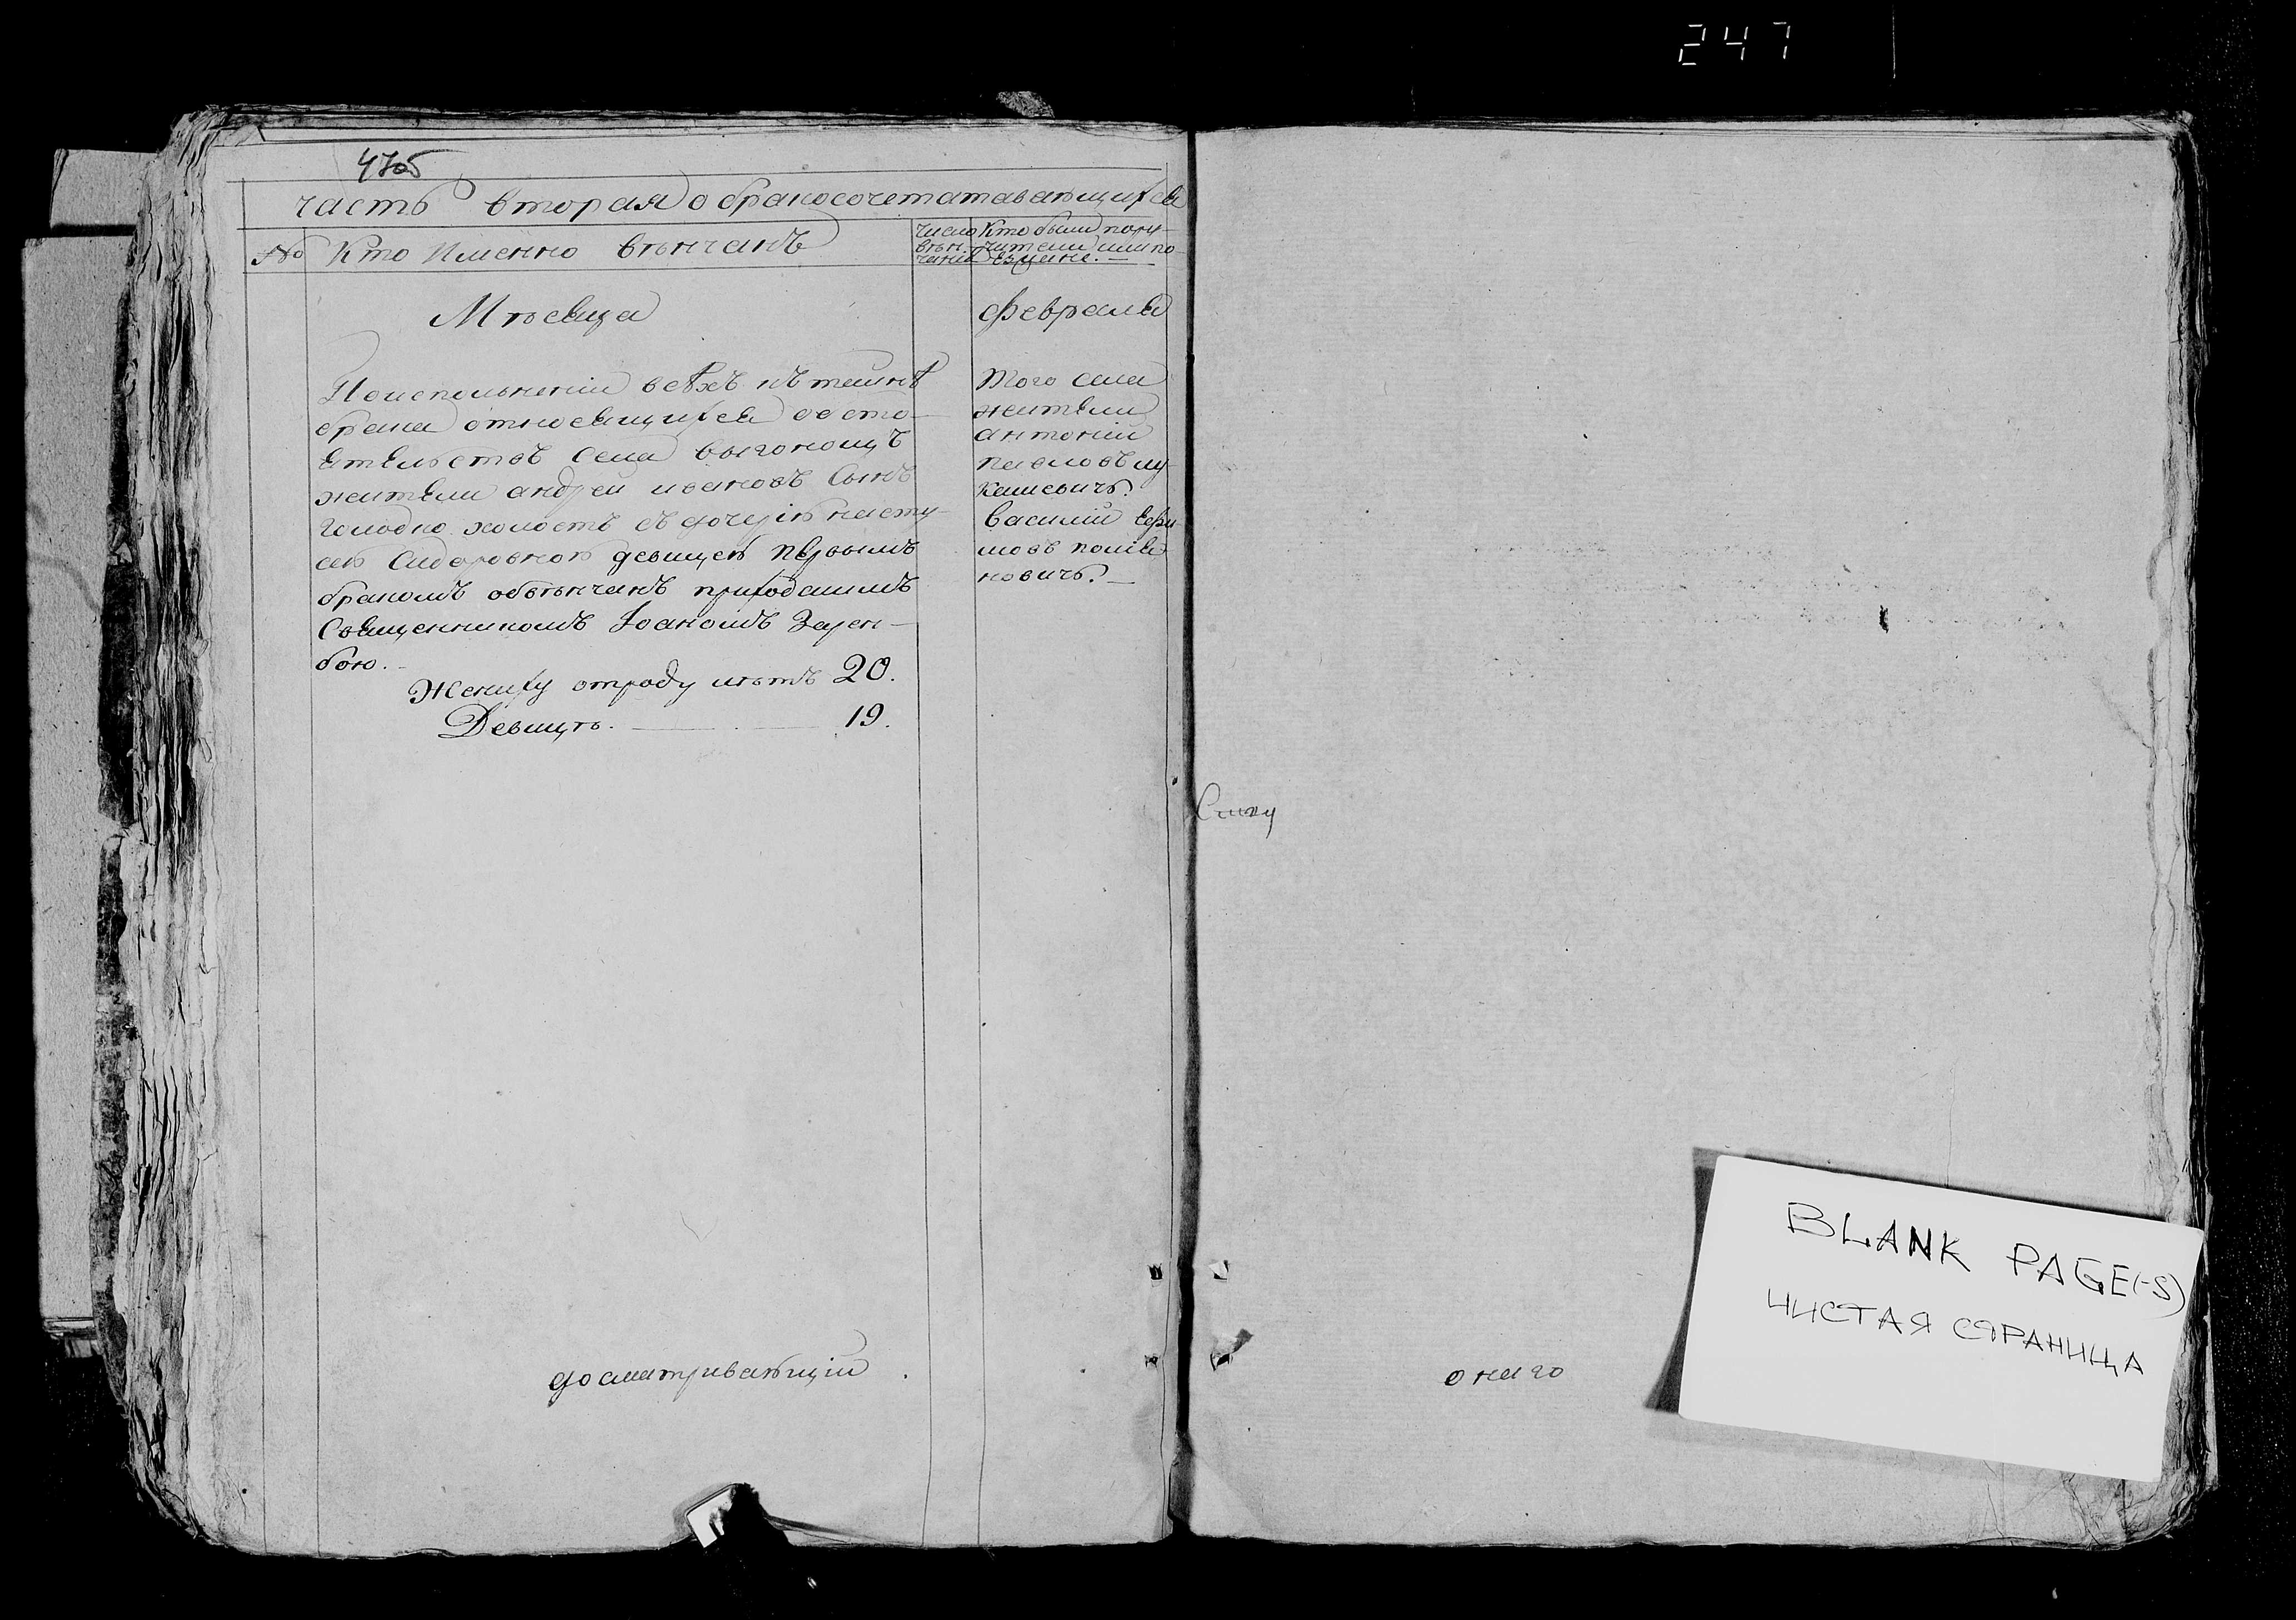 247
часть вторая о бракосочетатавающихся
№ Кто Именно вѣнчанъ
число вѣн- чания
Кто были пору- чители или по- езжане. —
Мѣсяца Февраля
По исполнении всѣхъ къ тайнѣ
брака относящихся обсто-
ятельствъ села выгонощъ
жители андрей ивановъ Сынъ
голодко холостъ съ дочерію насту-
сею Сидоровною девицею первымъ
бракомъ обвѣнчанъ приходскимъ
Священникомъ Іоаномъ Зарен-
бою. —
Жениху отроду лѣтъ 20.
Девицѣ. — 19.
Того села
жители
антоній
павловъ лу-
кашевичъ.
Василий Ефи-
мовъ
новичъ. —
досматривающій
онаго
BLANK PAGE(-S)
ЧИСТАЯ СТРАНИЦА